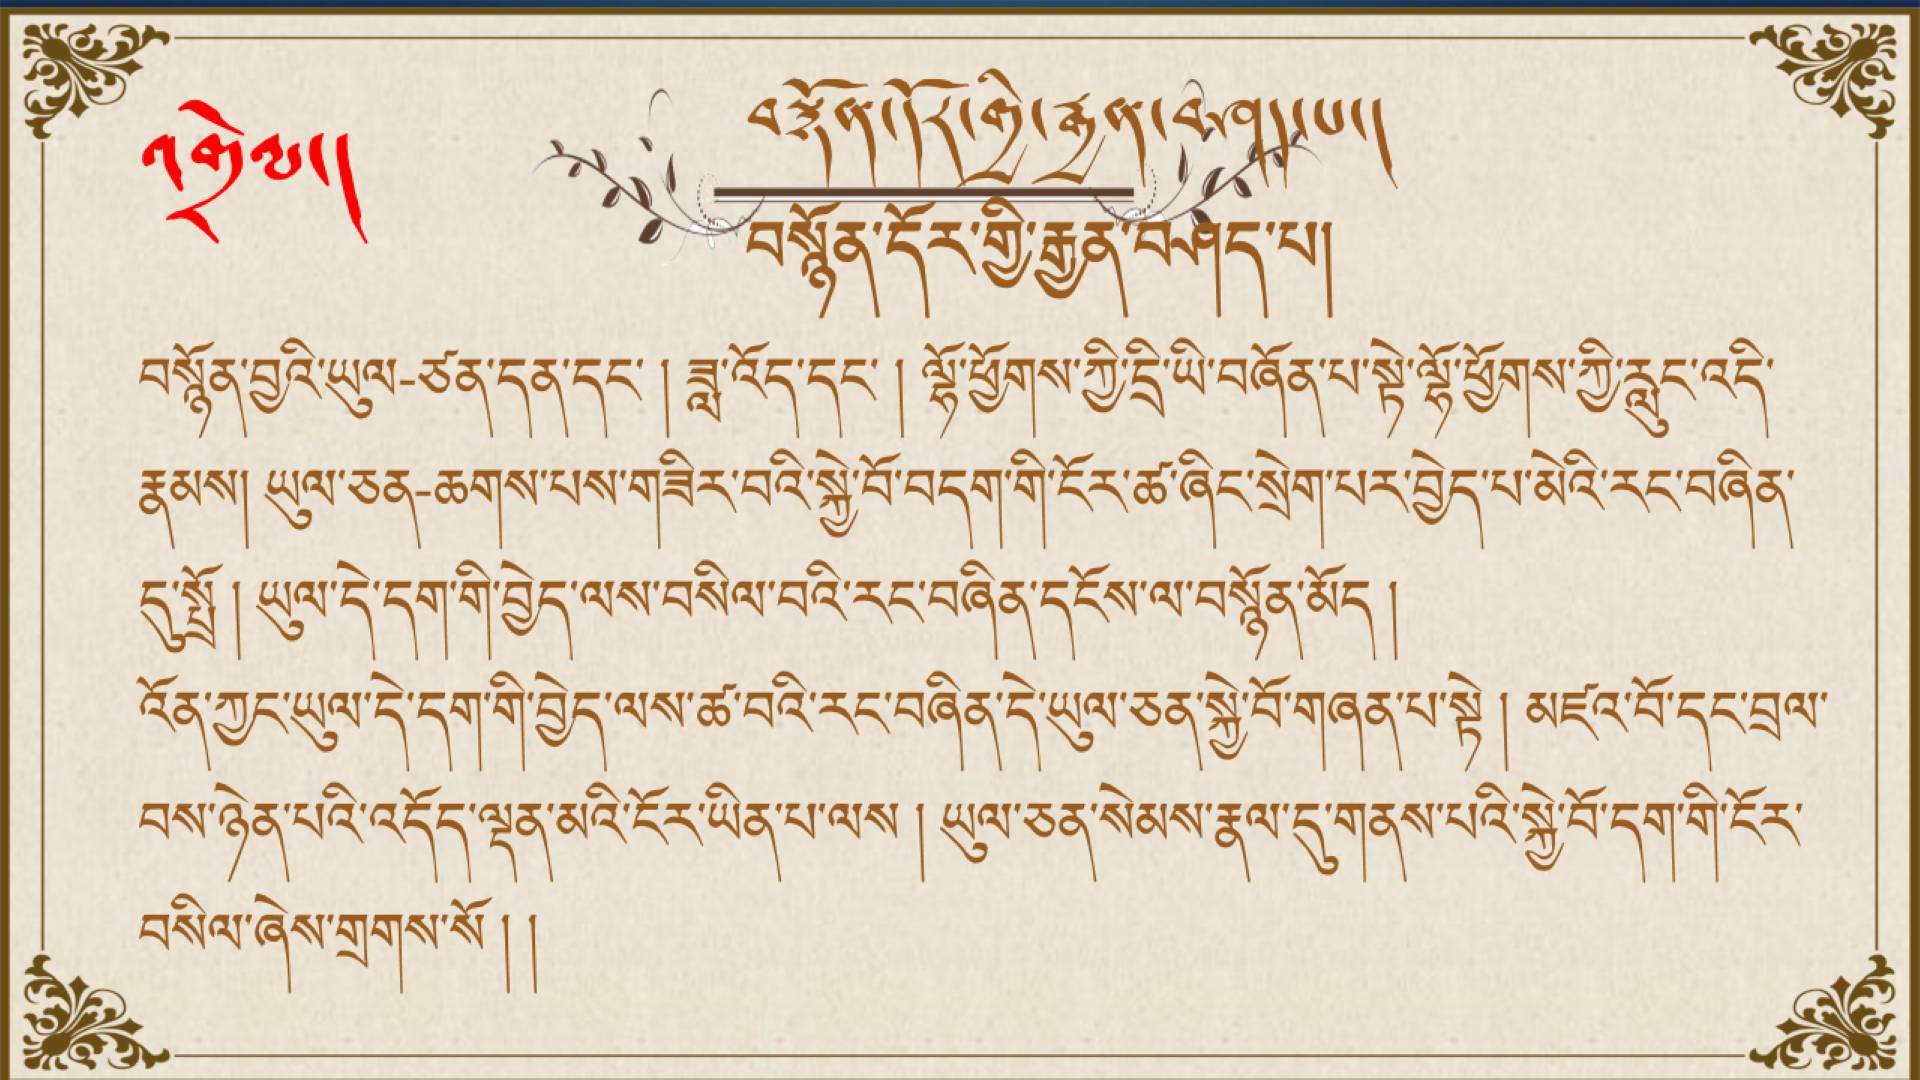 འགྲེལ།།
བསྙོན་དོར་གྱི་རྒྱན་བཤད་པ།
བསྙོན་དོར་གྱི་རྒྱན་བཤད་པ།
བསྙོན་བྱའི་ཡུལ-ཙན་དན་དང་ ། ཟླ་འོད་དང་ ། ལྷོ་ཕྱོགས་ཀྱི་དྲི་ཡི་བཞོན་པ་སྟེ་ལྷོ་ཕྱོགས་ཀྱི་རླུང་འདི་
རྣམས། ཡུལ་ཅན-ཆགས་པས་གཟིར་བའི་སྐྱེ་བོ་བདག་གི་ངོར་ཚ་ཞིང་སྲེག་པར་བྱེད་པ་མེའི་རང་བཞིན་
དུ་སྤྲོ ། ཡུལ་དེ་དག་གི་བྱེད་ལས་བསིལ་བའི་རང་བཞིན་དངོས་ལ་བསྙོན་མོད །
འོན་ཀྱང་ཡུལ་དེ་དག་གི་བྱེད་ལས་ཚ་བའི་རང་བཞིན་དེ་ཡུལ་ཅན་སྐྱེ་བོ་གཞན་པ་སྟེ ། མཛའ་བོ་དང་བྲལ་
བས་ཉེན་པའི་འདོད་ལྡན་མའི་ངོར་ཡིན་པ་ལས ། ཡུལ་ཅན་སེམས་རྣལ་དུ་གནས་པའི་སྐྱེ་བོ་དག་གི་ངོར་
བསིལ་ཞེས་གྲགས་སོ ། །